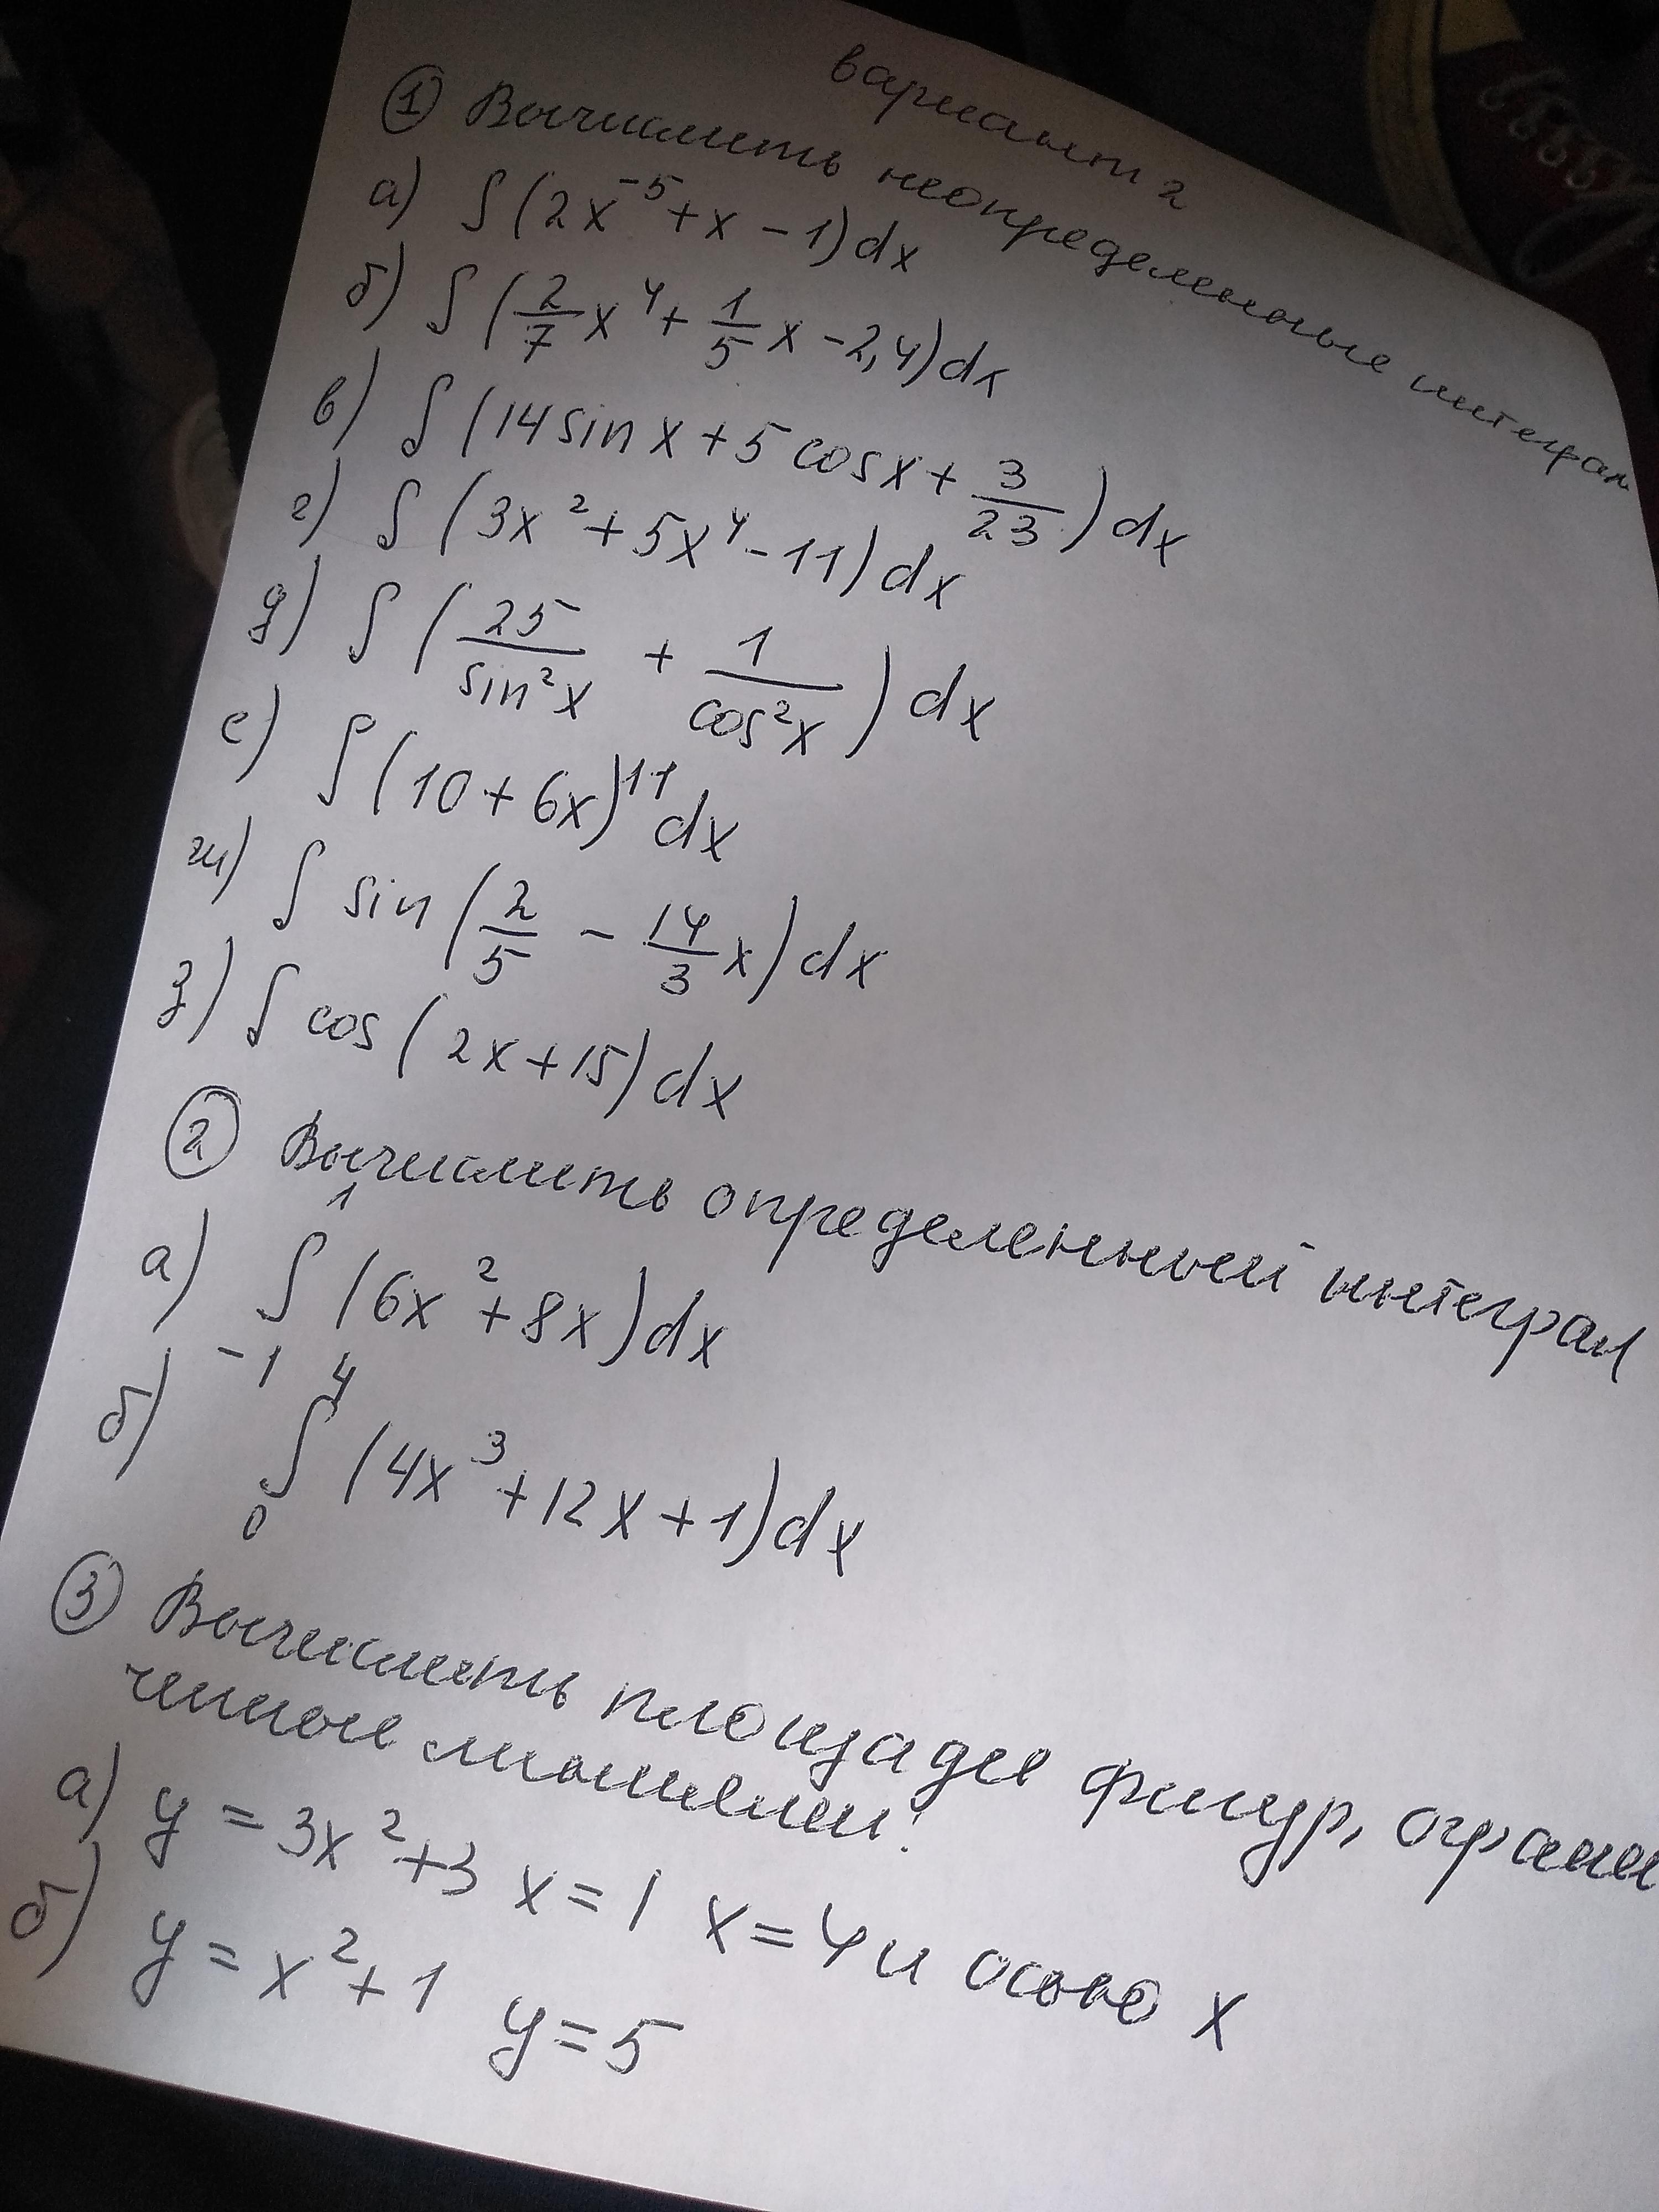 вариант 2
① Вычислить неопределенные интеграл
а) ∫(2x⁻⁵+x-1)dx
б) ∫(2/7 x⁴+1/5 x-2,4)dx
в) ∫(14sinx+5cosx+3/23)dx
г) ∫(3x²+5x⁴-11)dx
д) ∫(25/sin²x + 1/cos²x)dx
е) ∫(10+6x)¹¹dx
ж) ∫ sin(2/5 - 14/3 x)dx
з) ∫ cos(2x+15)dx
② Вычислить определенный интеграл
а) ∫₋₁¹(6x²+8x)dx
б) ∫₀⁴(4x³+12x+1)dx
③ Вычислить площадь фигур, ограни
ченной линиями:
а) y=3x²+3 x=1 x=4 и осью x
б) y=x²+1 y=5